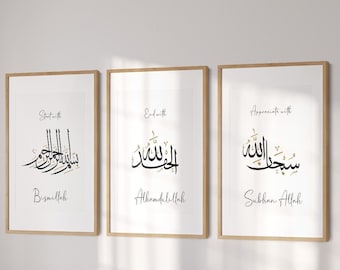 Start with
بسم الله الرحمن الرحيم
Bismillah
End with
الحمد لله
Alhamdulillah
Appreciate with
سبحان الله
Subhan Allah